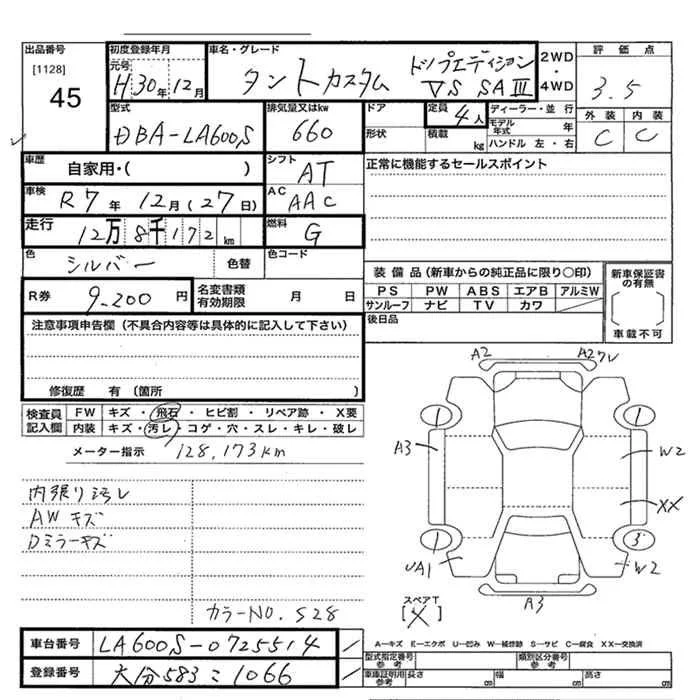 出品番号
[1128]
45
初度登録年月
元号
H 30年 12月
車名・グレード
タントカスタム トップエディション
VS SA Ⅲ
2WD
・
4WD
評価点
3.5
外装 内装
C C
型式
DBA-LA600S
排気量又はkw
660
ドア
形状
定員 4人
積載 kg
ディーラー・並行
モデル年式 年
ハンドル 左・右
車歴 自家用・( )
シフト AT
正常に機能するセールスポイント
車検 R7年 12月(27日)
AC AAC
走行 12万8千172km
燃料 G
色 シルバー 色替
色コード
R券 9,200円
名変書類有効期限 月 日
装備品(新車からの純正品に限り○印)
PS PW ABS エアB アルミW
サンルーフ ナビ TV カワ
新車保証書の有無
[ ]
車載不可
後日品
注意事項申告欄(不具合内容等は具体的に記入して下さい)
修復歴 有(箇所 )
検査員記入欄
FW キズ・飛石・ヒビ割・リペア跡・X要
内装 キズ・汚レ・コゲ・穴・スレ・キレ・破レ
メーター指示 128,173km
内張り汚レ
AWキズ
Dミラーキズ
カラーNO. S28
A2 A2ワレ
1 1
A3 W2
XX
1 3
UA1 W2
A3
スペアT
[X]
A―キズ E―エクボ U―凹み W―補修跡 S―サビ C―腐食 XX―交換済
車台番号 LA600S-0725514
登録番号 大分583こ1066
型式指定番号 参考
類別区分番号 参考
車庫証明用 参考 長さ cm 幅 cm 高さ cm